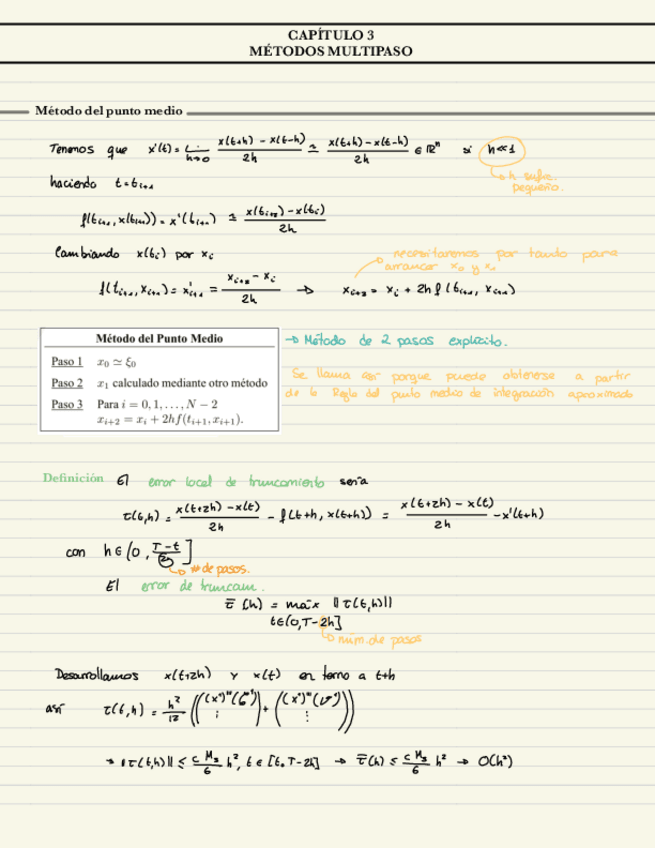 CAPÍTULO 3
MÉTODOS MULTIPASO
Método del punto medio
Tenemos que x'(t) = lim h→0 (x(t+h) - x(t-h))/2h ≃ (x(t+h) - x(t-h))/2h ∈ ℝⁿ si h<<1
↳ h sufic. pequeño.
haciendo t=t_{i+1}
f(t_{i+1}, x(t_{i+1})) = x'(t_{i+1}) ≃ (x(t_{i+2}) - x(t_i))/2h
Cambiando x(t_i) por x_i
necesitaremos por tanto para
arrancar x_0 y x_1
f(t_{i+1}, x_{i+1}) = x'_{i+1} = (x_{i+2} - x_i)/2h → x_{i+2} = x_i + 2h f(t_{i+1}, x_{i+1})
Método del Punto Medio
Paso 1 x_0 ≃ ξ_0
Paso 2 x_1 calculado mediante otro método
Paso 3 Para i = 0, 1, . . . , N − 2
x_{i+2} = x_i + 2hf(t_{i+1}, x_{i+1}).
→ Método de 2 pasos explícito.
Se llama así porque puede obtenerse a partir
de la Regla del punto medio de integración aproximada
Definición El error local de truncamiento sería
τ(t,h) = (x(t+2h) - x(t))/2h - f(t+h, x(t+h)) = (x(t+2h) - x(t))/2h - x'(t+h)
con h ∈ (0, (T-t)/2]
↳ # de pasos.
El error de truncam.
τ̄(h) = máx ||τ(t,h)||
t∈[0,T-2h]
↳ núm. de pasos
Desarrollamos x(t+2h) y x(t) en torno a t+h
así τ(t,h) = h²/12 ((x¹)'''
→ ||τ(t,h)|| ≤ (c M_3)/6 h², t ∈ [t_0, T-2h] → τ̄(h) ≤ (c M_3)/6 h² → O(h²)